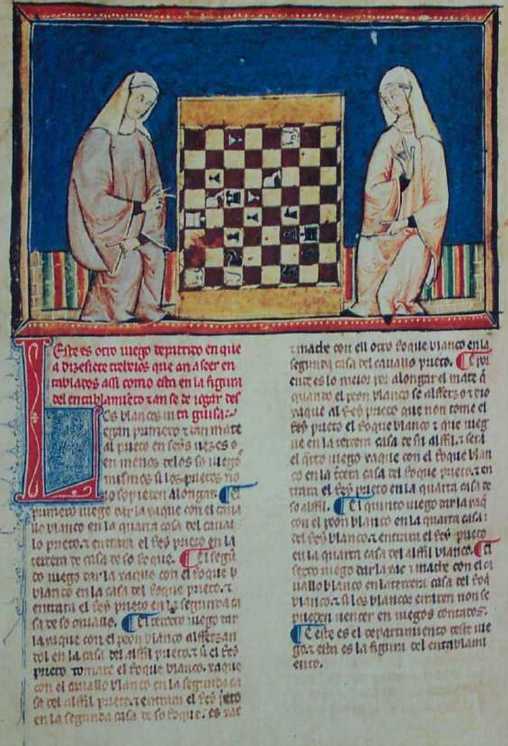 Este es otro iuego departido en que
a dizesiete trebeios que an a seer en
tablados assi como esta en la figura
del entablamiento τ an se de iogar desta
guisa.
Los blancos
iuegan primero τ dan mate
al prieto en seys uezes o
en menos de los so iuegos
mismos si los prietos no
lo sopieren alongar. El
primero iuego dar la xaque con el caua
llo blanco en la quarta casa del caual
lo prieto. τ entrara el Rey prieto en la
tercera casa de so Roque. El segun
do iuego dar la xaque con el Roque
blanco en la casa del Roque prieto. τ
entrara el Rey prieto en la segunda ca
sa de so cauallo. El tercero iuego dar
la xaque con el peon blanco alfferzan
dol en la casa del alffil prieto. τ si el Rey
prieto tomare el Roque blanco. xaque
con el cauallo blanco en la segunda ca
sa del alffil prieto. τ entrara el Rey prieto
en la segunda casa de so Roque.
τ mate con ell otro Roque blanco en la
segunda casa del cauallo prieto. τ por
ende es lo meior por alongar el mate q̃
quando el peon blanco se alfferza τ dio
xaque al Rey prieto que non tome el
Rey prieto el Roque blanco τ que iueg
ue en la tercera casa de su alffil. τ sera
el quarto iuego xaque con el Roque blan
co en la tercera casa del Roque prieto. τ en
trara el Rey prieto en la quarta casa de
so alffil. El quinto iuego dar la xaq̃
con el peon blanco en la quarta casa
del Rey blanco. τ entrara el Rey prieto
en la quarta casa del alffil blanco. El
sexto iuego dar la xaque τ mate con el ca
uallo blanco en la tercera casa del Rey
blanco. τ si los blancos erraren non se
pueden uencer en iuegos contados.
τ este es el departimiento deste iue
go. τ esta es la figura del entablami
ento.